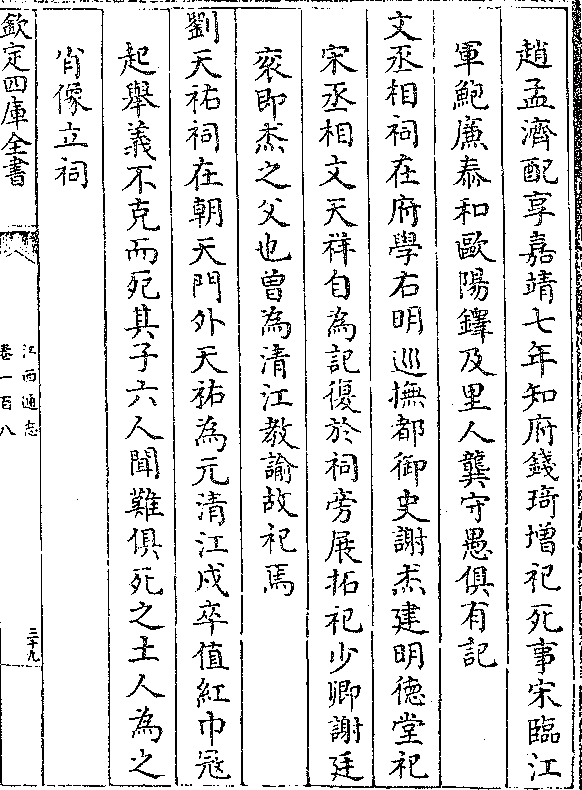 趙孟濟配享嘉靖七年知府錢琦増祀死事宋臨江
軍鮑廉泰和歐陽鐸及里人龔守愚俱有記
文丞相祠在府學右明巡撫都御史謝杰建明德堂祀
宋丞相文天祥自為記復於祠旁展拓祀少卿謝廷
袞即杰之父也曾為清江教諭故祀焉
劉天祐祠在朝天門外天祐為元清江戍卒值紅巾冦
起舉義不克而死其子六人聞難俱死之土人為之
肖像立祠
欽定四庫全書
江西通志
卷一百八
三十九